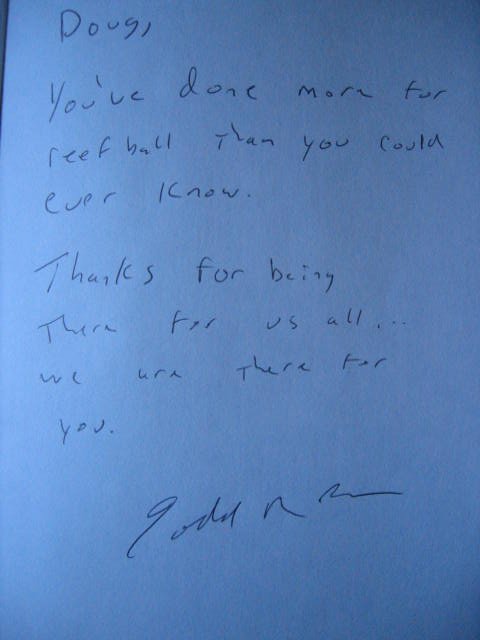 Doug,
You've done more for
reefball than you could
ever know.
Thanks for being
there for us all...
we are there for
you.
Todd R